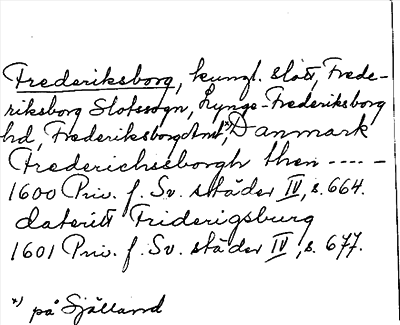 Frederiksborg, kungl. slott, Frede-
riksborg Slotssogn, Lynge-Frederiksborg
hd, Frederiksborg Amt,*) Danmark
Frederichssborgh then -----
1600 Priv. f. Sv. städer IV, s. 664.
daterit Friderigsburg
1601 Priv. f. Sv. städer IV, s. 677.
*) på Själland